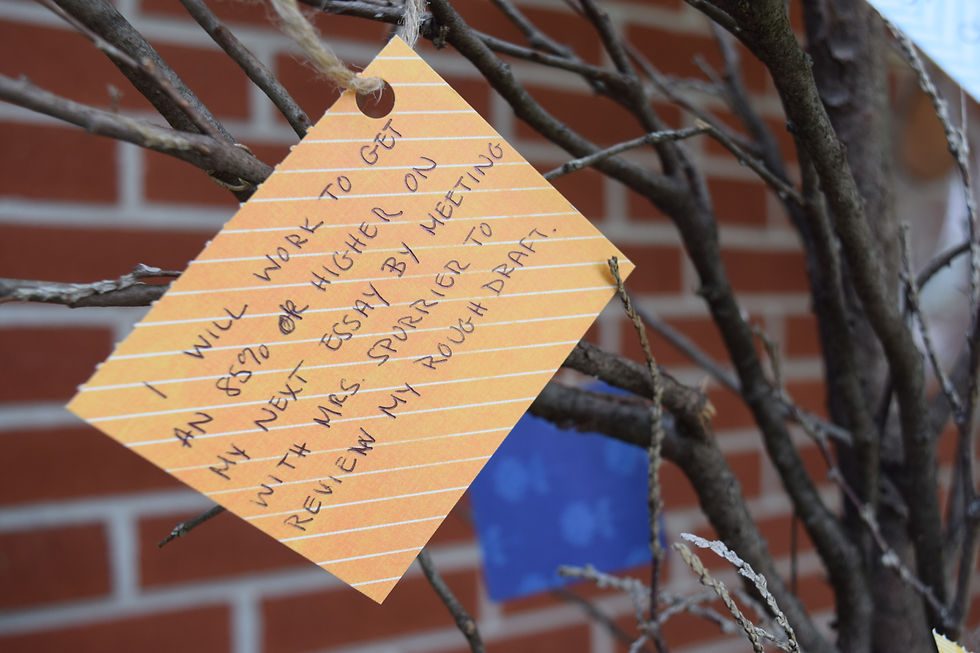 I WILL WORK TO GET
AN 85% OR HIGHER ON
MY NEXT ESSAY BY MEETING
WITH MRS. SPURRIER TO
REVIEW MY ROUGH DRAFT.